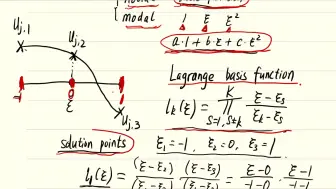 modal 1 ξ ξ²
a·1+b·ξ+c·ξ²
uj,1
uj,2
uj,3
-1 0 1
ξ
Lagrange basis function
lk(ξ) = ∏ K s=1, s≠k (ξ-ξs)/(ξk-ξs)
solution points ξ1=-1, ξ2=0, ξ3=1
l1(ξ) = (ξ-ξ2) (ξ-ξ3) = ξ-0 · ξ-1